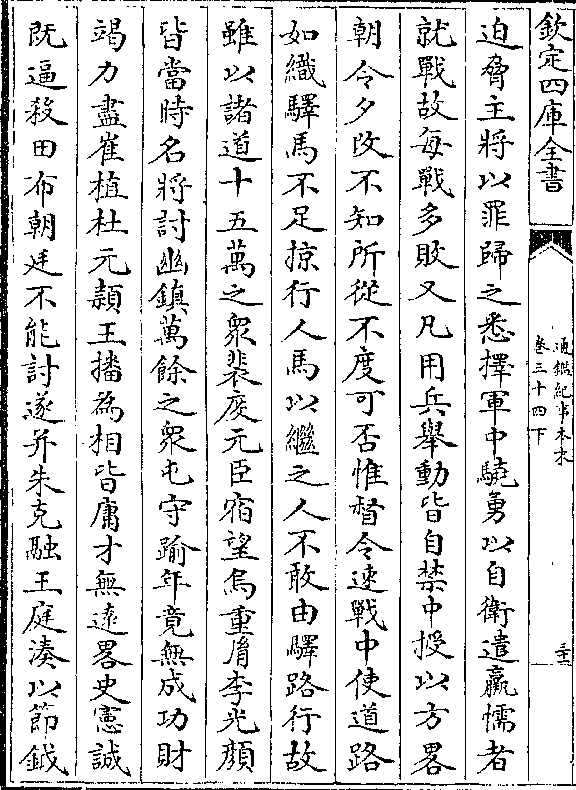 欽定四庫全書
通鑑紀事本末
卷三十四下
三十三
迫脅主將以罪歸之悉擇軍中驍勇以自衛遣羸懦者
就戰故每戰多敗又凡用兵舉動皆自禁中授以方畧
朝令夕改不知所從不度可否惟督令速戰中使道路
如織驛馬不足掠行人馬以繼之人不敢由驛路行故
雖以諸道十五萬之衆裴度元臣宿望烏重𦙍李光顔
皆當時名將討幽鎮萬餘之衆屯守踰年竟無成功財
竭力盡崔植杜元頴王播為相皆庸才無逺畧史憲誠
既逼殺田布朝廷不能討遂并朱克融王庭湊以節鉞